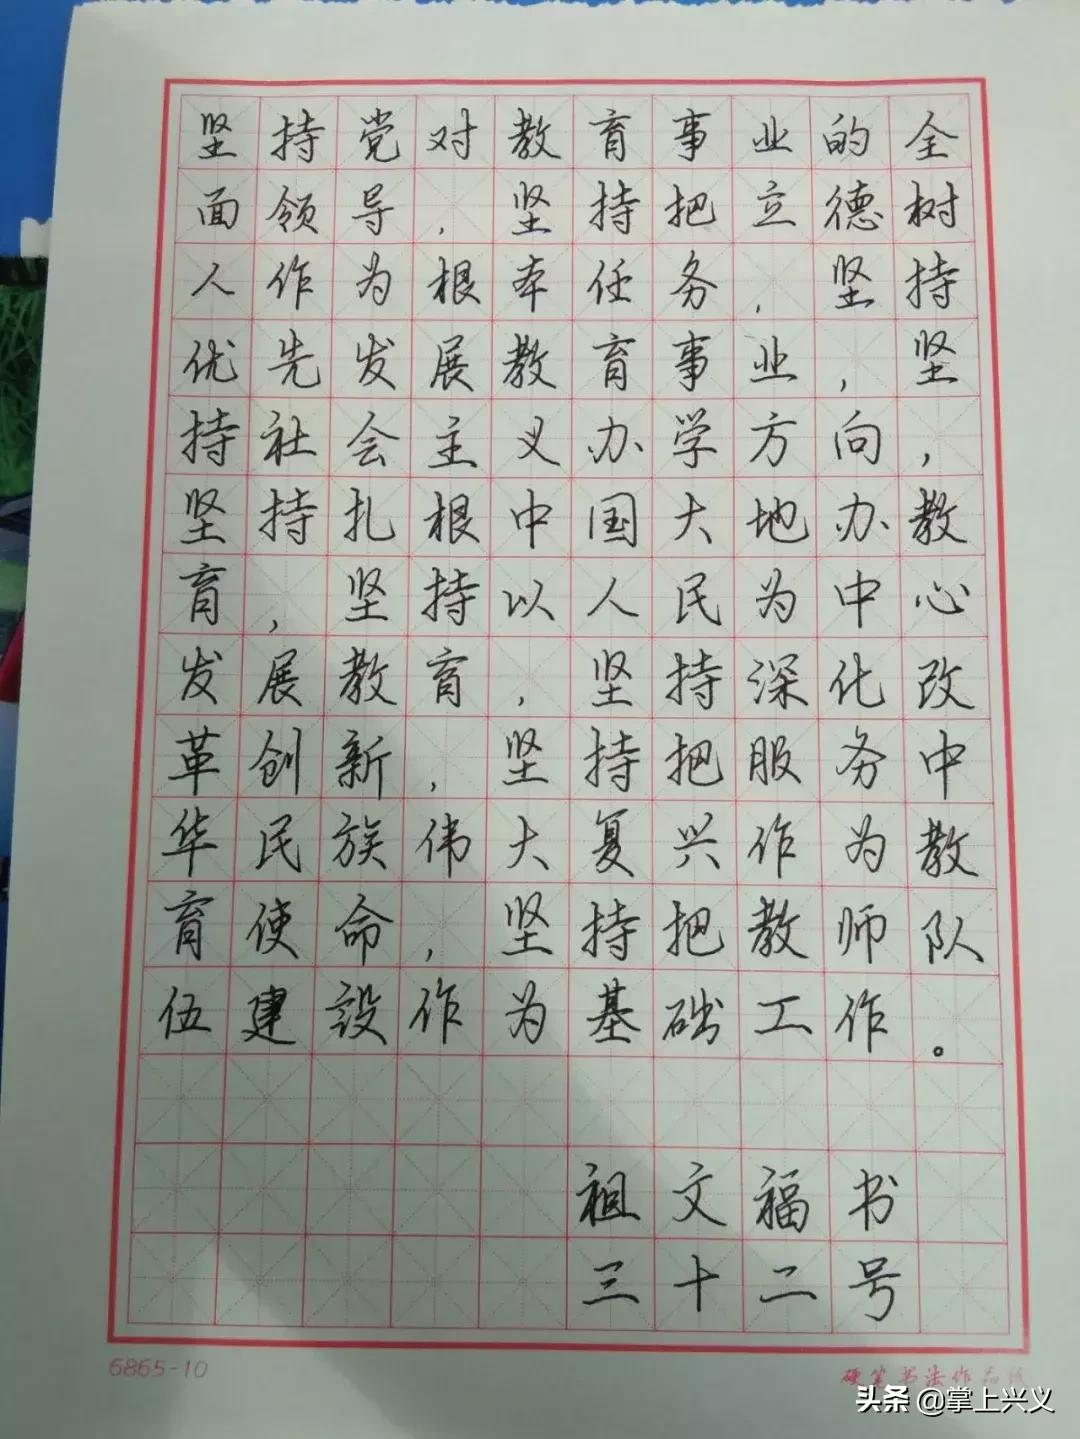 坚持党对教育事业的全
面领导，坚持把立德树
人作为根本任务，坚持
优先发展教育事业，坚
持社会主义办学方向，
坚持扎根中国大地办教
育，坚持以人民为中心
发展教育，坚持深化改
革创新，坚持把服务中
华民族伟大复兴作为教
育使命，坚持把教师队
伍建設作为基础工作。
祖文福书
三十二号
6865-10
硬笔书法作品纸
头条@掌上兴义